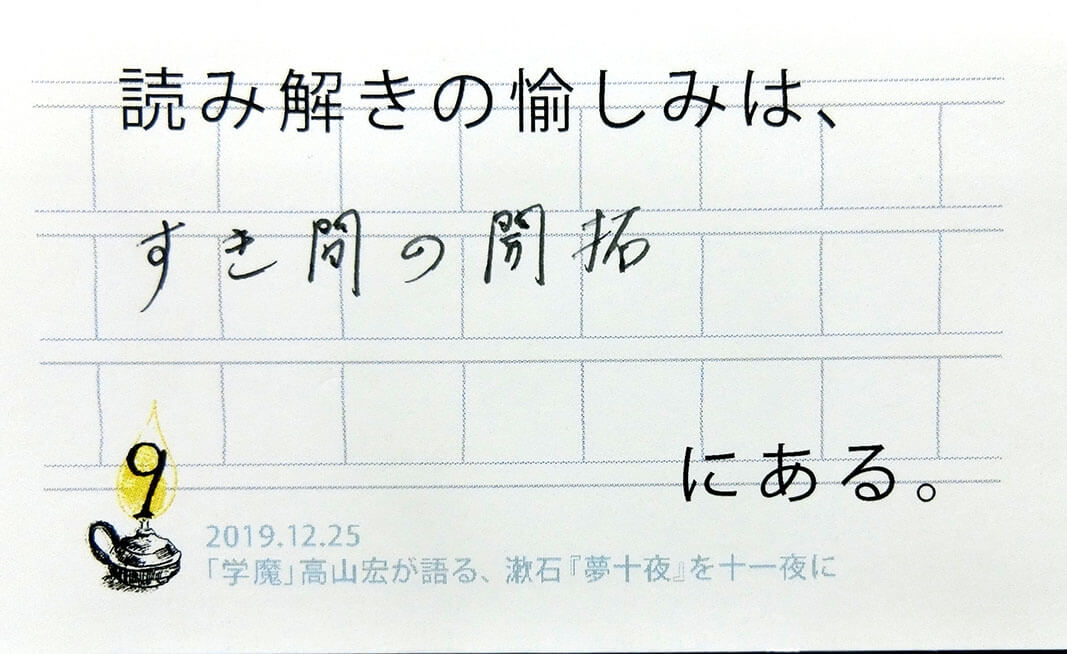 読み解きの愉しみは、
すき間の開拓
にある。
9
2019.12.25
「学魔」高山宏が語る、漱石『夢十夜』を十一夜に